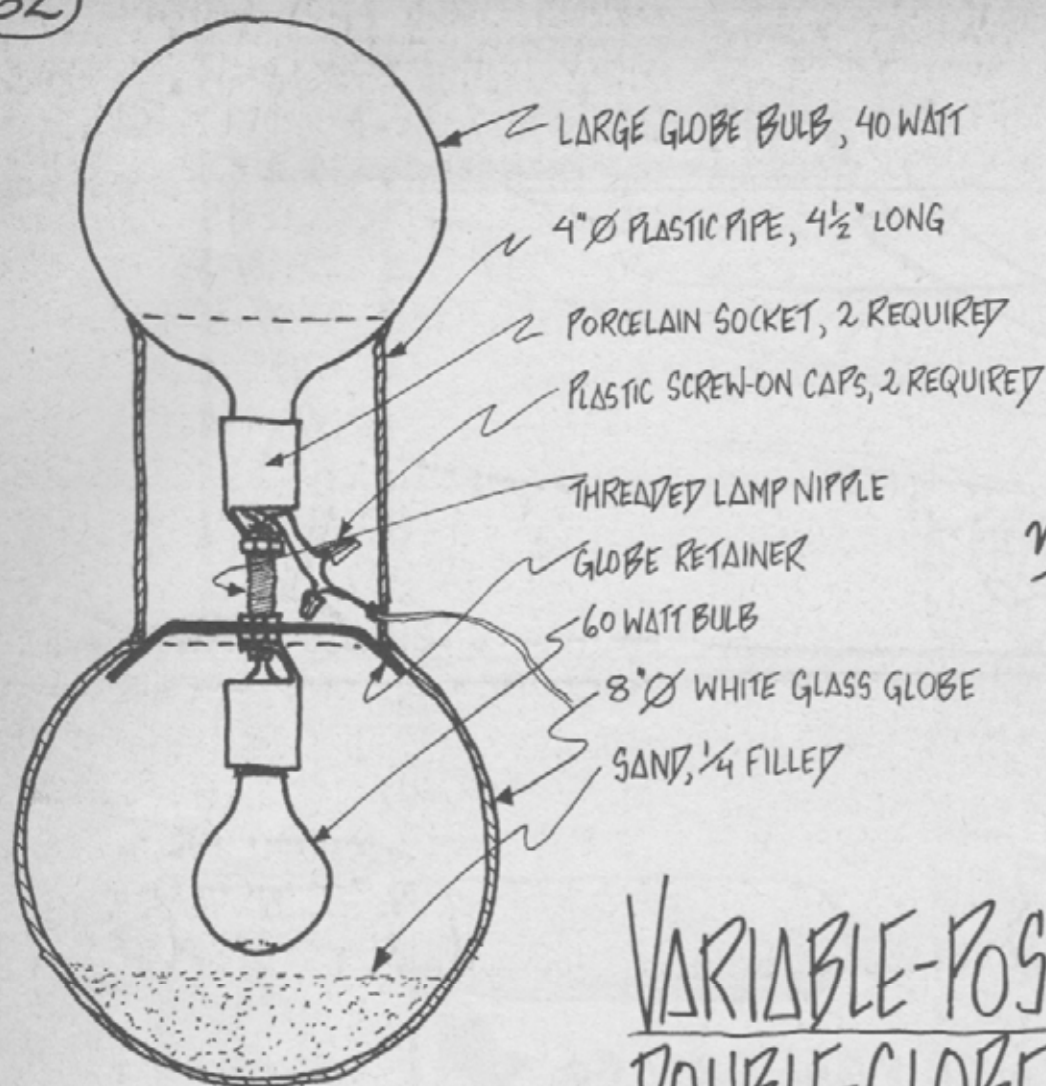 LARGE GLOBE BULB, 40 WATT
4"Ø PLASTIC PIPE, 4½" LONG
PORCELAIN SOCKET, 2 REQUIRED
PLASTIC SCREW-ON CAPS, 2 REQUIRED
THREADED LAMP NIPPLE
GLOBE RETAINER
60 WATT BULB
8"Ø WHITE GLASS GLOBE
SAND, ¼ FILLED
VARIABLE-POS
DOUBLE-GLOBE